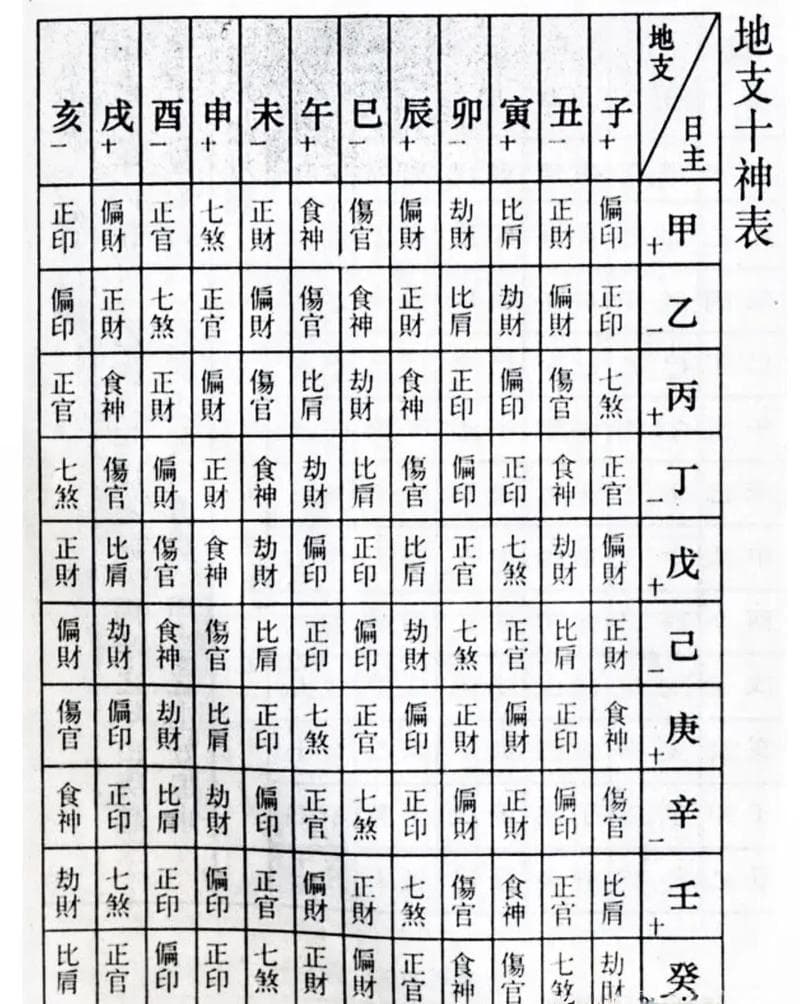 地支十神表
地支 日主 子+ 丑− 寅+ 卯− 辰+ 巳− 午+ 未− 申+ 酉− 戌+ 亥−
甲+ 偏印 正財 比肩 劫財 偏財 傷官 食神 正財 七煞 正官 偏財 正印
乙− 正印 偏財 劫財 比肩 正財 食神 傷官 偏財 正官 七煞 正財 偏印
丙+ 七煞 傷官 偏印 正印 食神 劫財 比肩 傷官 偏財 正財 食神 正官
丁− 正官 食神 正印 偏印 傷官 比肩 劫財 食神 正財 偏財 傷官 七煞
戊+ 偏財 劫財 七煞 正官 比肩 正印 偏印 劫財 食神 傷官 比肩 正財
己− 正財 比肩 正官 七煞 劫財 偏印 正印 比肩 傷官 食神 劫財 偏財
庚+ 食神 正印 偏財 正財 偏印 正官 七煞 正印 比肩 劫財 偏印 傷官
辛− 傷官 偏印 正財 偏財 正印 七煞 正官 偏印 劫財 比肩 正印 食神
壬+ 比肩 正官 食神 傷官 七煞 正財 偏財 正官 偏印 正印 七煞 劫財
癸 劫財 七煞 傷官 食神 正官 偏財 正財 七煞 正印 偏印 正官 比肩